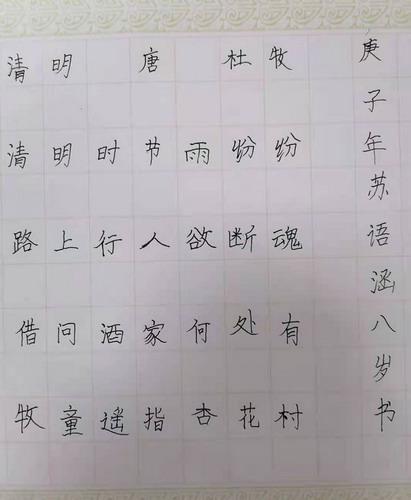 清明 唐 杜牧
清明时节雨纷纷
路上行人欲断魂
借问酒家何处有
牧童遥指杏花村
庚子年苏语涵八岁书